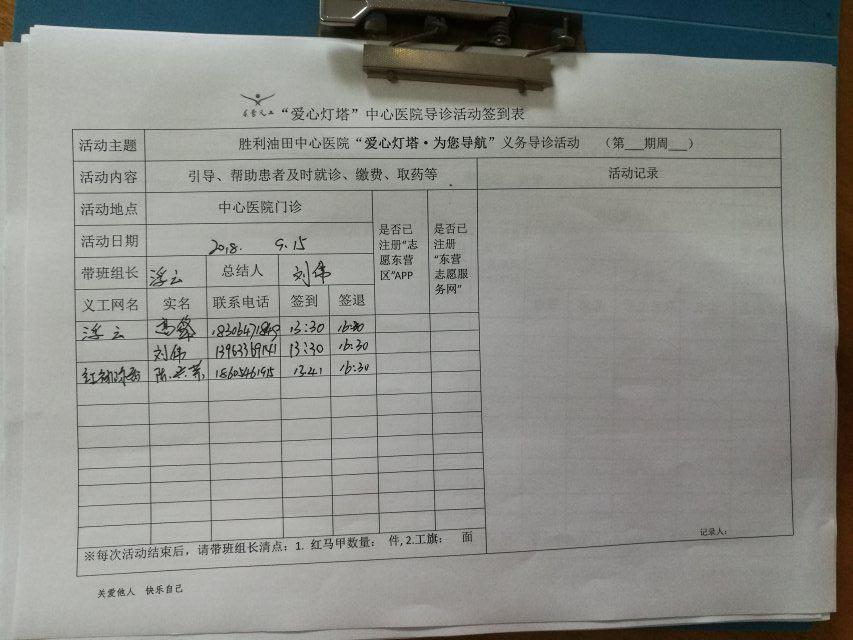 东营义工 “爱心灯塔”中心医院导诊活动签到表
活动主题 胜利油田中心医院“爱心灯塔·为您导航”义务导诊活动 （第___期周___）
活动内容 引导、帮助患者及时就诊、缴费、取药等 活动记录
活动地点 中心医院门诊
是否已注册“志愿东营区”APP
是否已注册“东营志愿服务网”
活动日期 2018. 9.15
带班组长 浮云 总结人 刘伟
义工网名 实名 联系电话 签到 签退
浮云 高峰 13:30 16:30
刘伟 13963369141 13:30 16:30
18605461915 13:41 16:30
※每次活动结束后，请带班组长清点：1. 红马甲数量： 件, 2.工旗： 面
记录人：
关爱他人 快乐自己